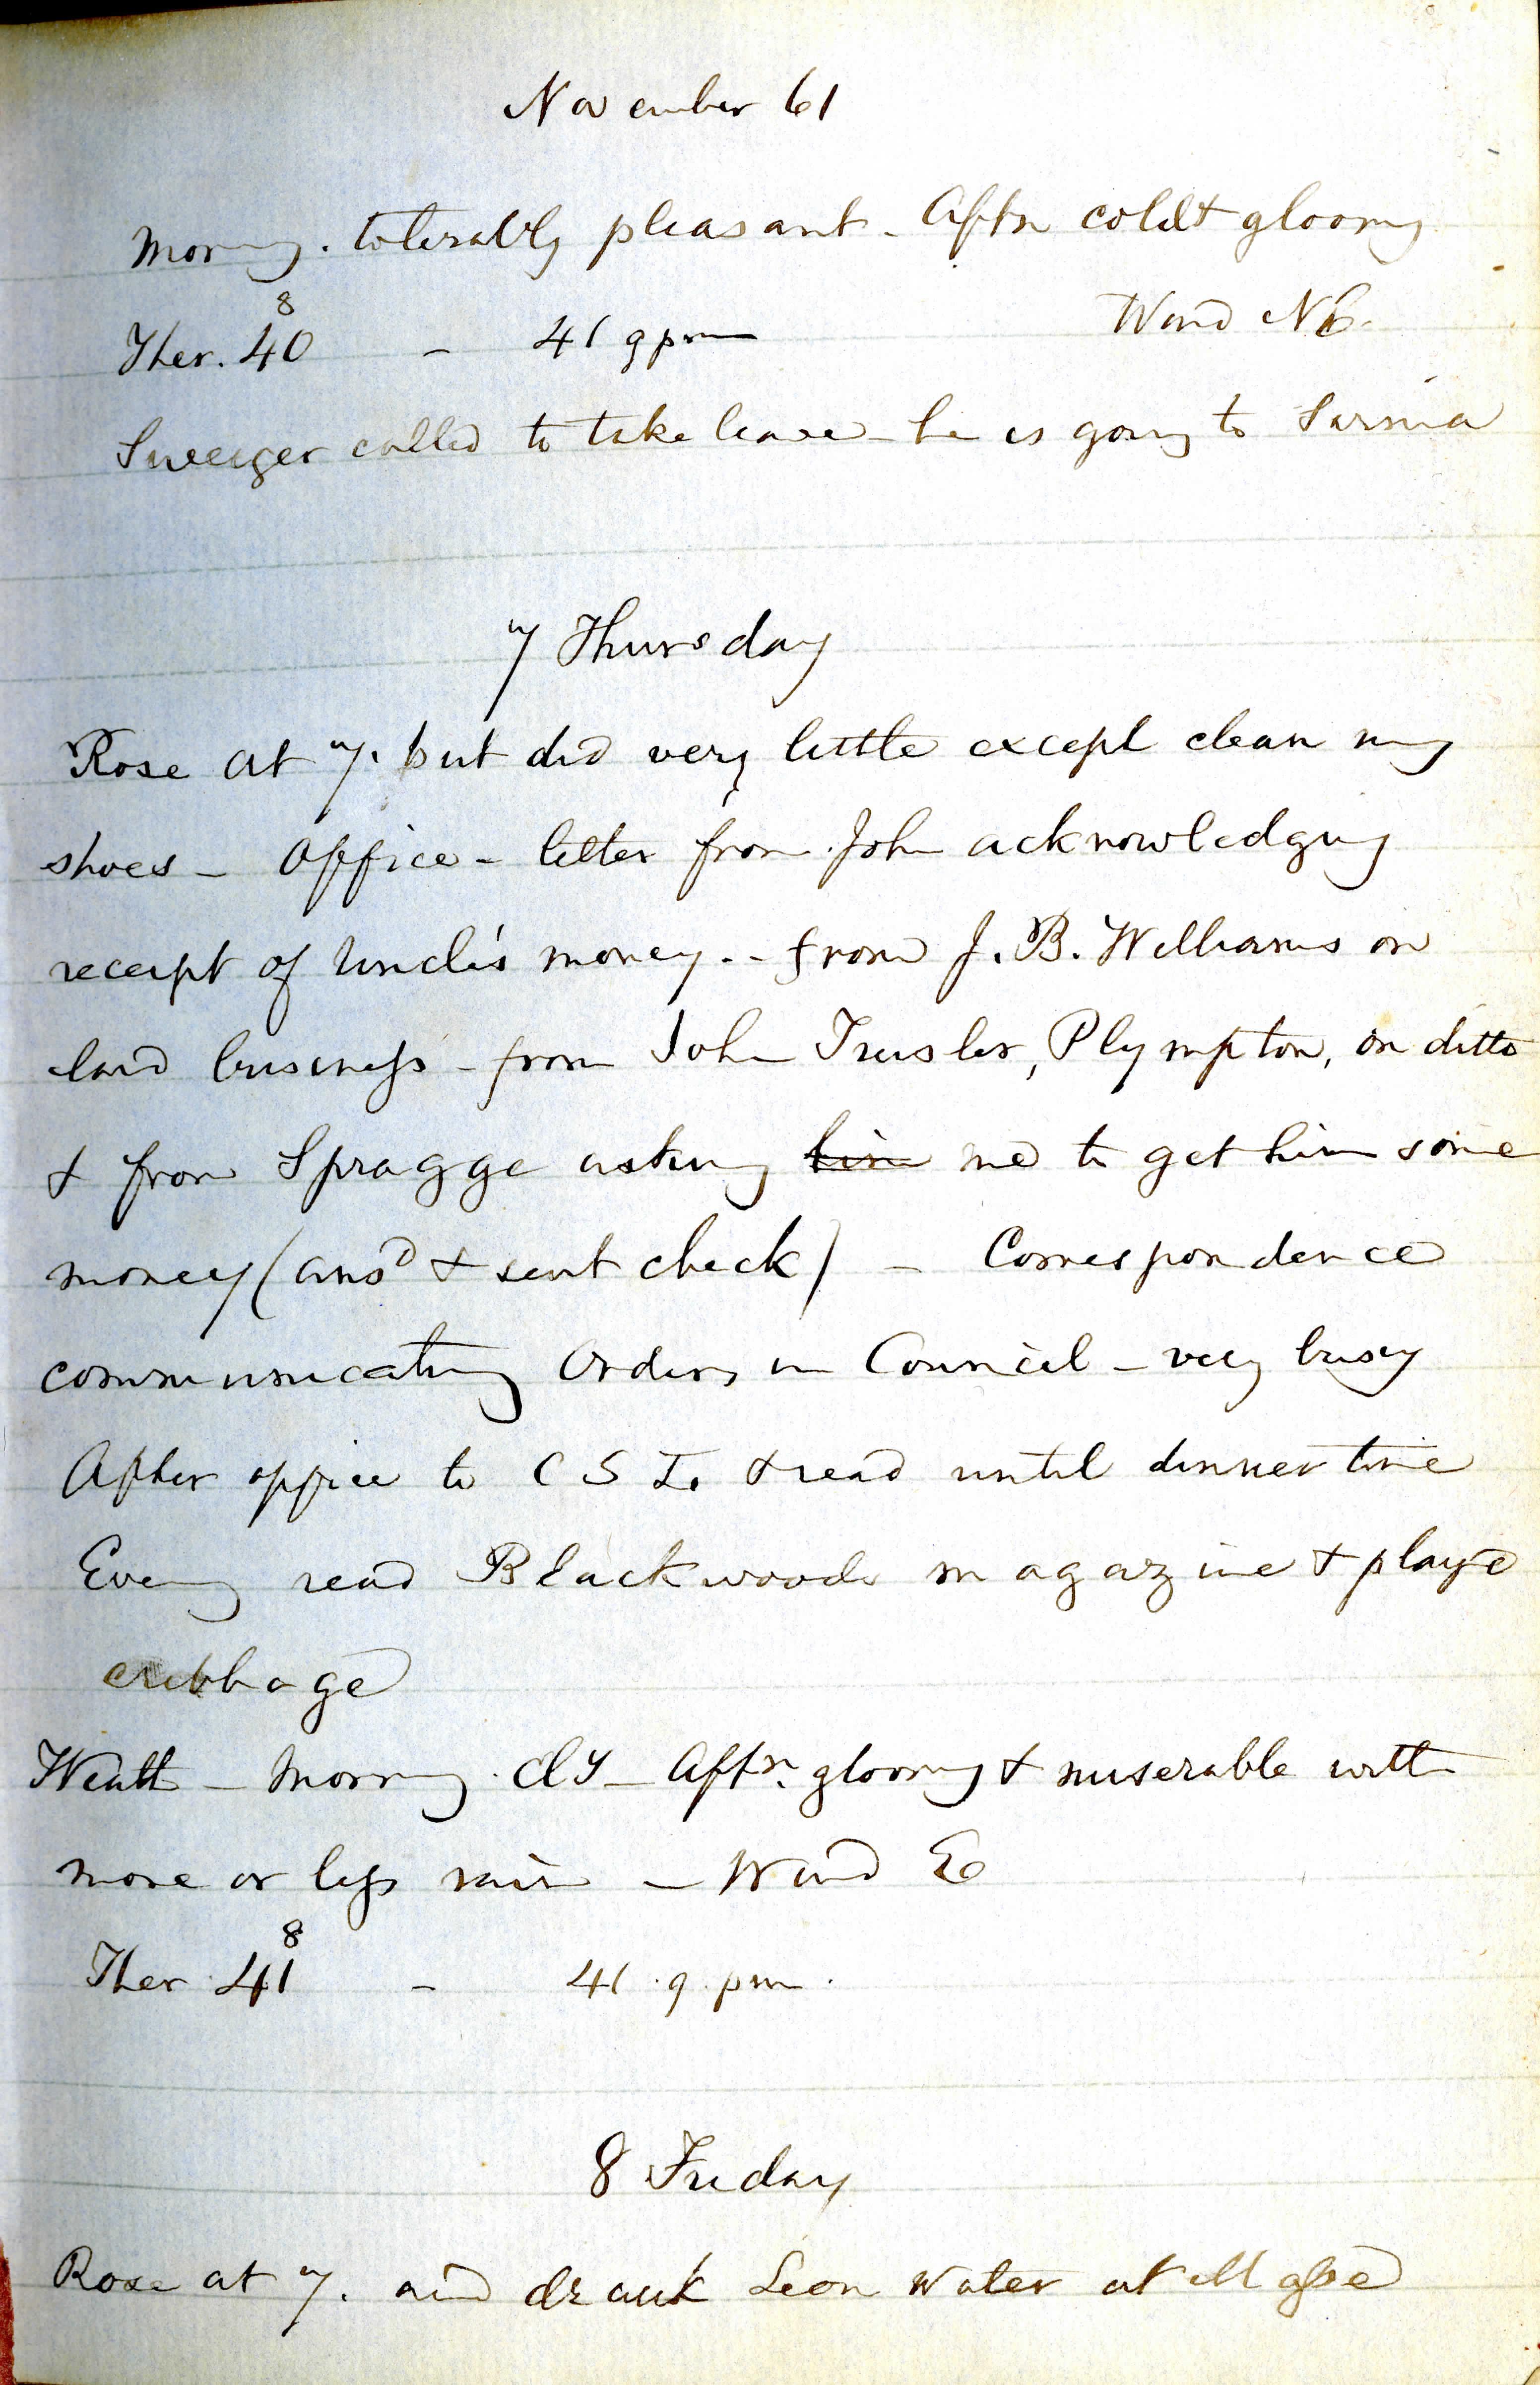 November 61
Morng. tolerably pleasant - Aftn cold & gloomy
Ther. 40 8 - 41 9 pm Wind NE.
called to take leave - he is going to Sarnia
7 Thursday
Rose at 7. but did very little except clean my
shoes - Office - letter from John acknowledging
receipt of Uncle's money. - from J. B. Williams on
land business - from John Trusler, Plympton, on ditto
& from Spragge asking him me to get him some
money (ansd & sent check) - Correspondence
communicating Orders in Council - very busy
After office to C S I. & read until dinner time
Eveng read Blackwoods magazine & playd
cribbage
Weath - Morng. cldy - Aftn. gloomy & miserable with
more or less rain - Wind E
Ther 41 8 - 41. 9. pm.
8 Friday
Rose at 7. and drank Leon Water at